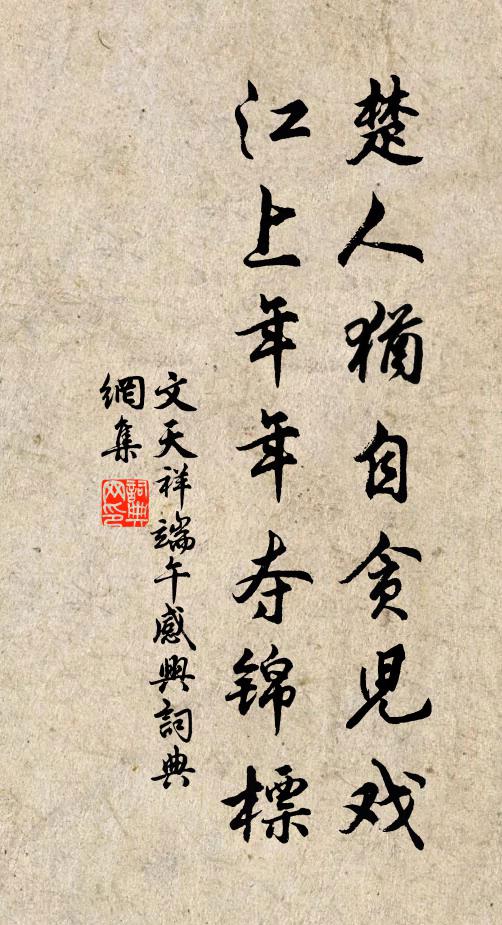 楚人猶自貪兒戏
江上年年夺锦標
文天祥端午感興詞典
網集
詞典
网印